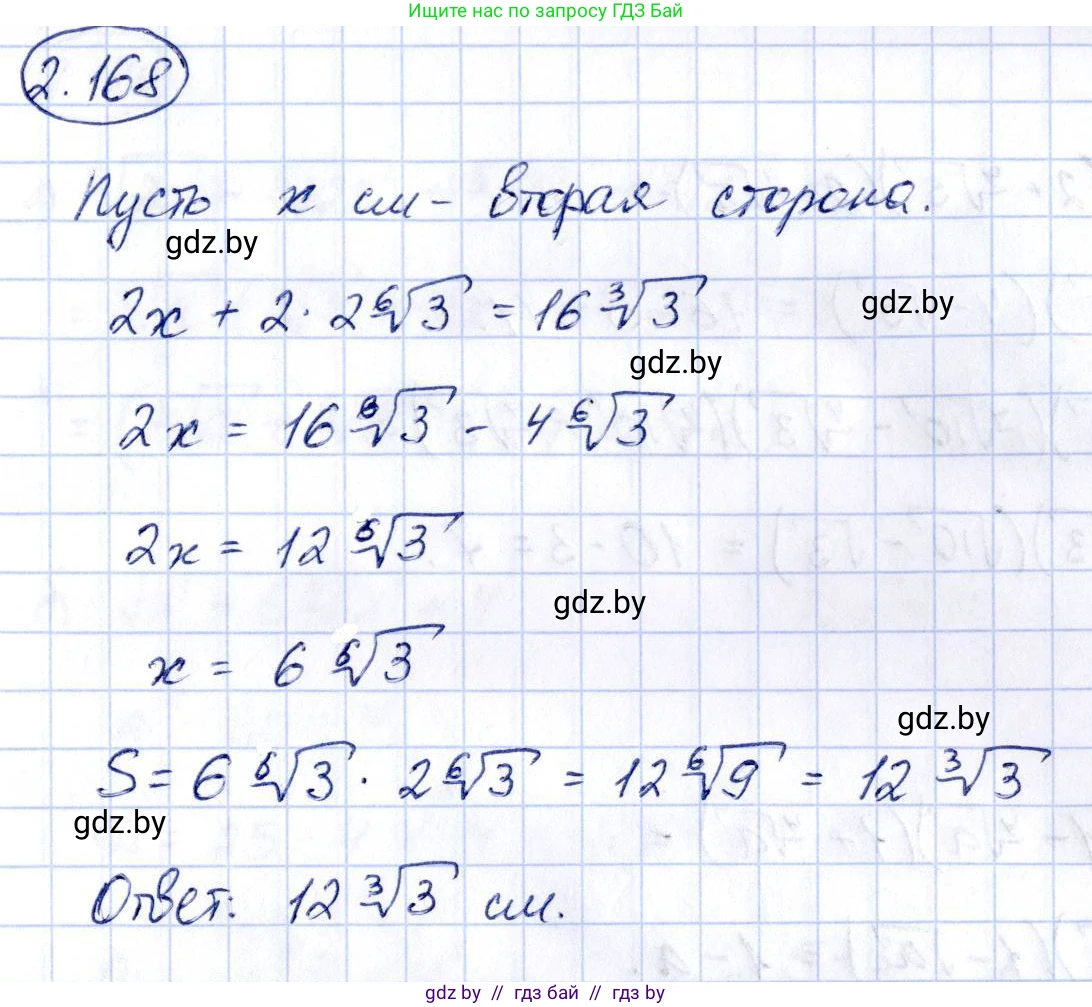 Ищите нас по запросу ГДЗ Бай
2.168
Пусть x см - вторая сторона.
gdz.by
2x + 2 · 2⁶√3 = 16 ³√3
gdz.by
gdz.by
2x = 16 ⁶√3 - 4 ⁶√3
2x = 12 ⁶√3
gdz.by
x = 6 ⁶√3
gdz.by
S = 6 ⁶√3 · 2 ⁶√3 = 12 ⁶√9 = 12 ³√3
gdz.by
Ответ: 12 ³√3 см.
gdz.by // гдз бай // гдз by